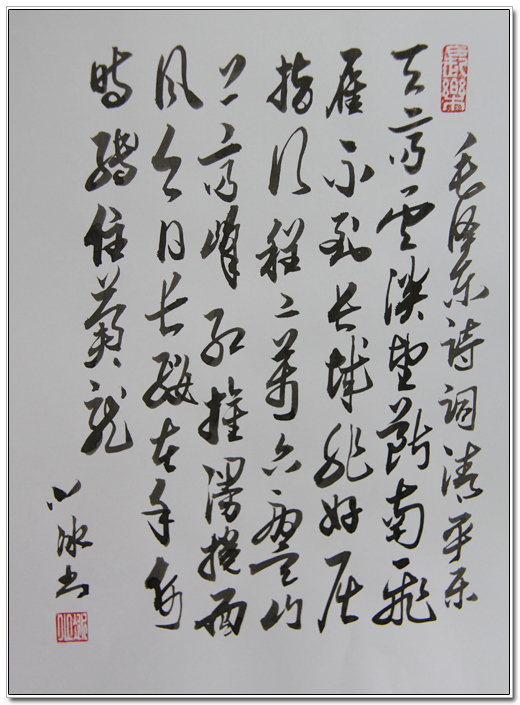 毛泽东诗词清平乐
天高雲淡望断南飞
雁不到长城非好屈
指行程二萬六盘山
上高峰红旗漫捲西
风今日长缨在手何
时缚住苍龙
冰书